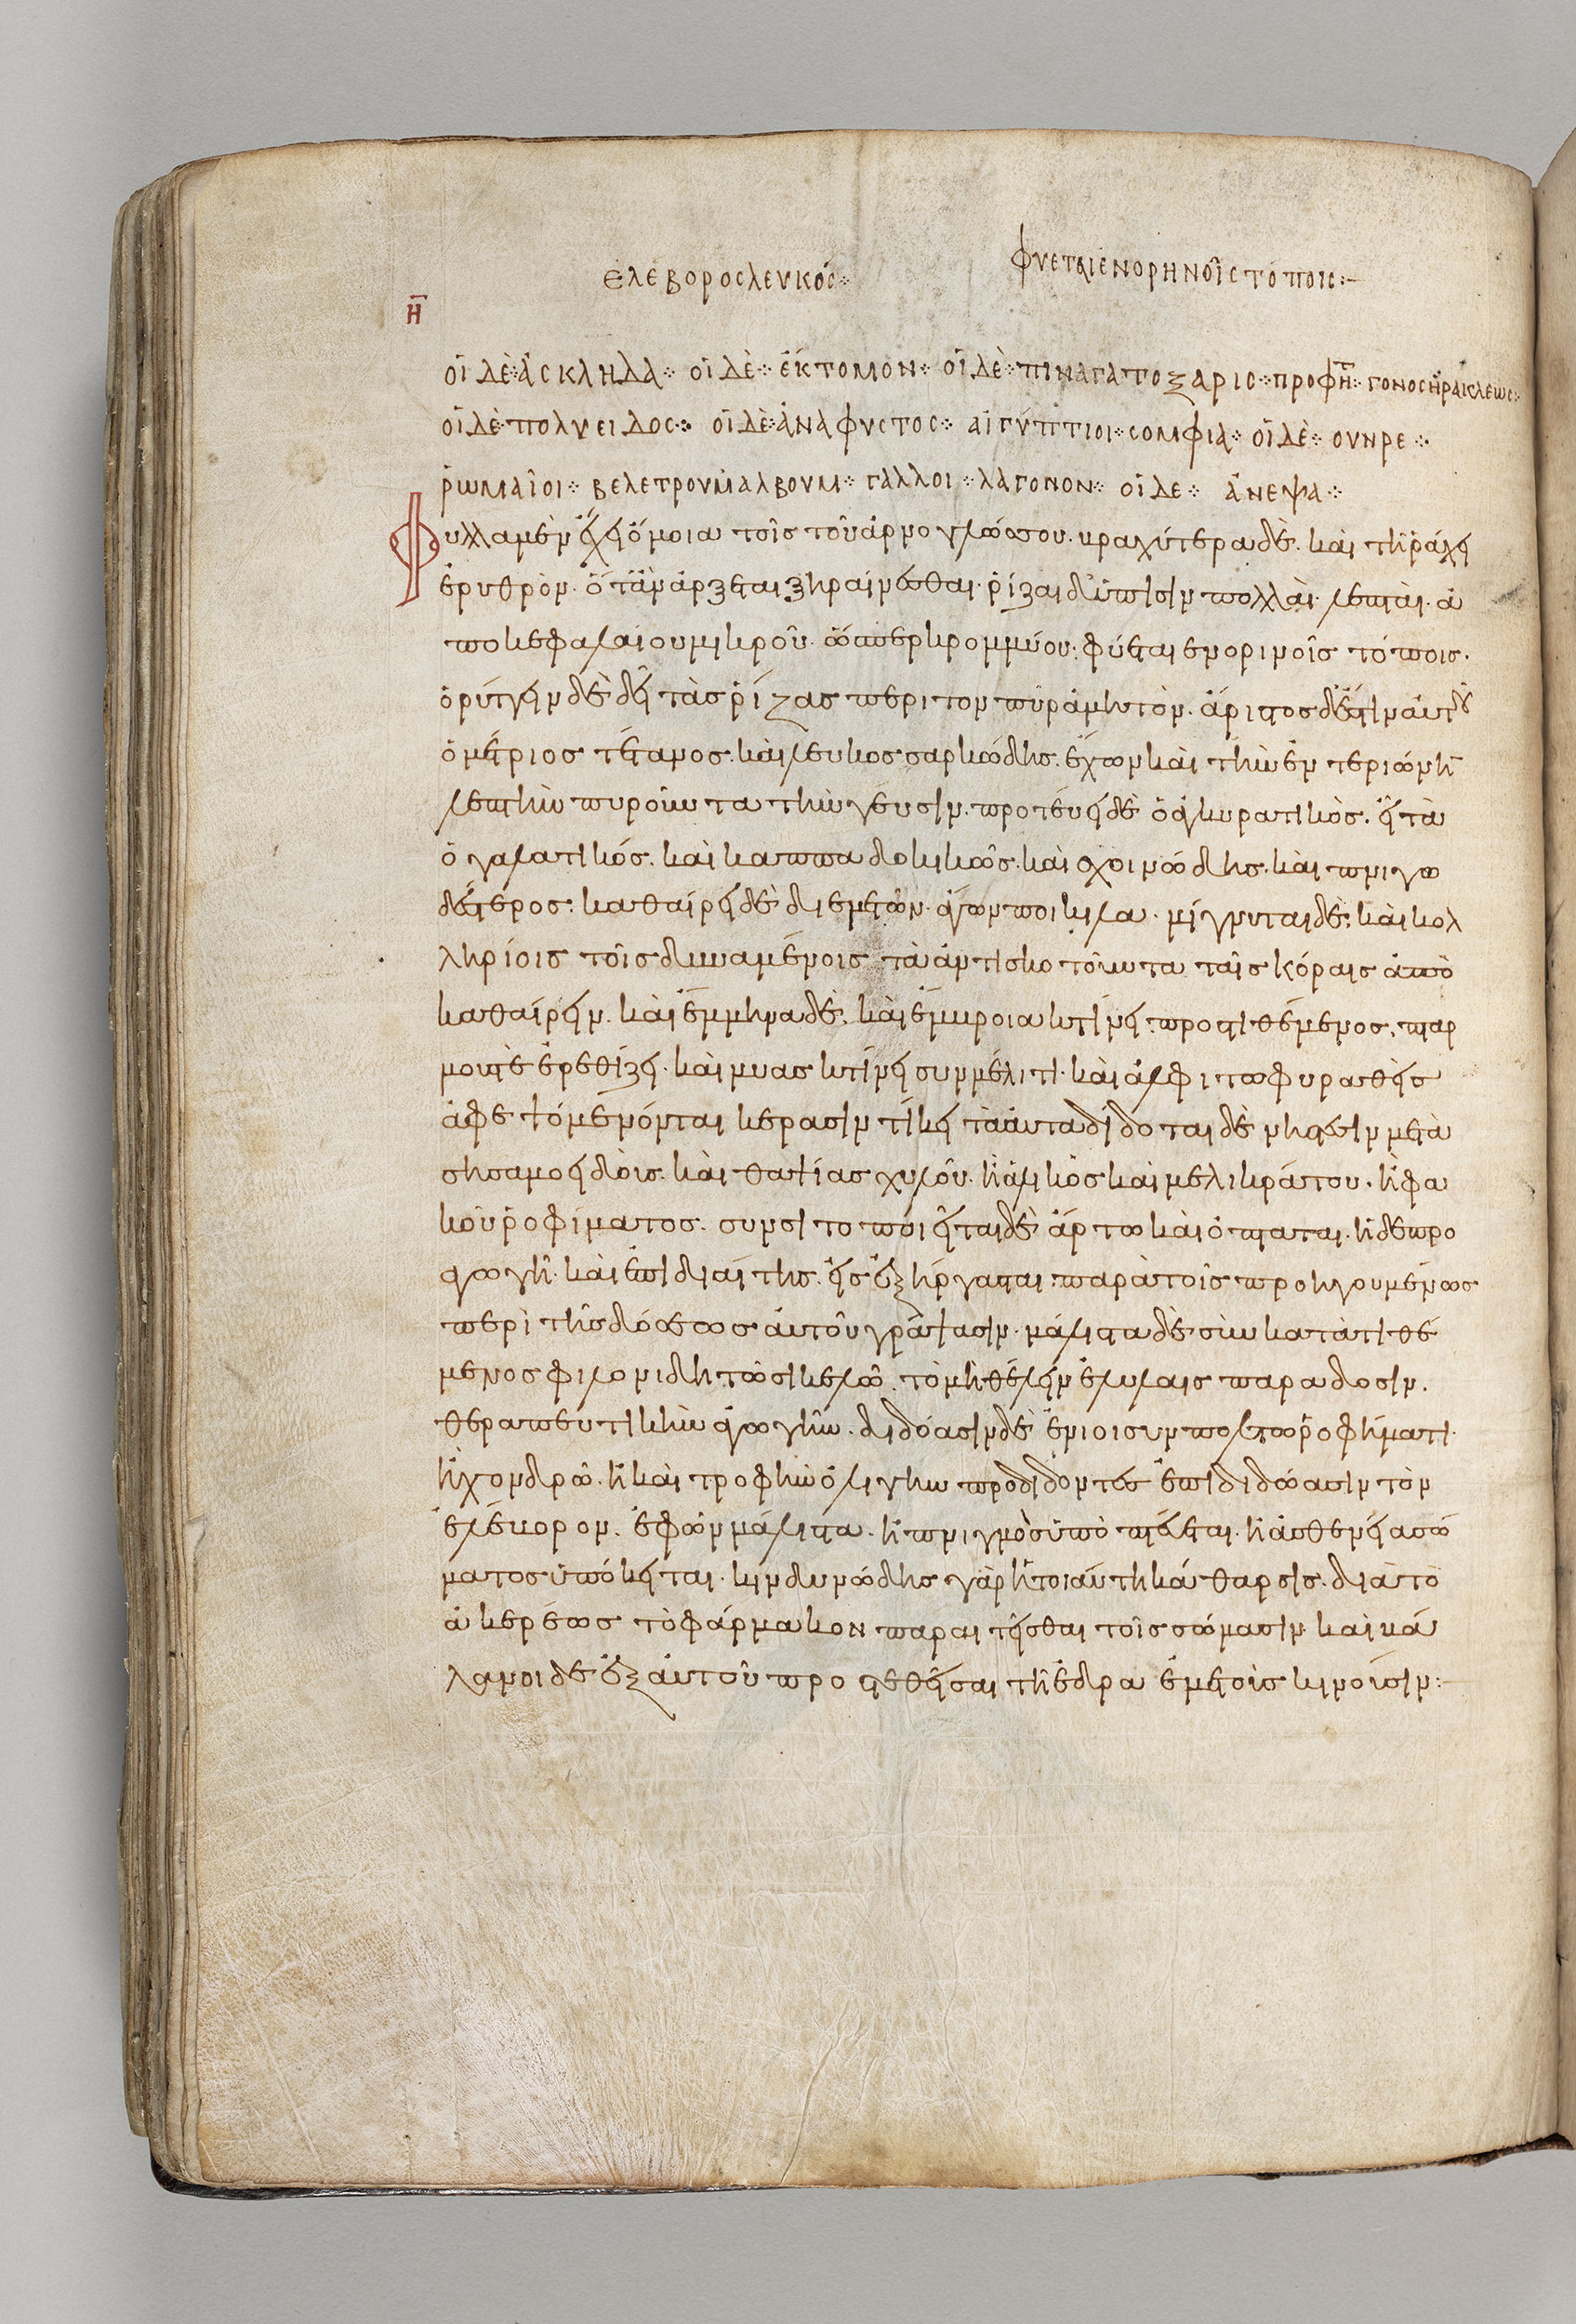 ἐλέβορος λευκός
φύεται ἐν ὀρηνοῖς τόποις
η
οἱ δὲ ἀσκληδα οἱ δὲ ἔκτομον οἱ δὲ πιναγατοξαρις προφη γόνος ἡρακλεως
οἱ δὲ πολυειδος οἱ δὲ ἀναφυστος αἰγύπτιοι σομφια οἱ δὲ ουνρε
ῥωμαῖοι βελετρουμ αλβουμ γαλλοι λαγονον οἱ δε ἀνεψα
Φυλλα μὲν ἔχει ὅμοια τοῖς τοῦ ἀρνογλώσσου. βραχύτερα δὲ. καὶ τῆ ῥάχει
ἐρυθρὸν. ὅτἂν ἄρξεται ξηραίνεσθαι. ῥίζαι δ' ὕπεισιν πολλὰι. λεπτὰι. ἀ
πο κεφαλαιου μικροῦ. ὥσπερ κρομμύου. φύεται εν ορινοῖς τόποις.
ὀρύγειν δὲ δεῖ τὰς ῥίζας περι τον πυράμητὸν. ἄριστος δέ ἐστιν αὐτοῦ
ὁ μέτριος τέταμος. καὶ λευκος σαρκώδης. ἔχων καὶ τὴν ἐντεριώνη
λεπτὴν πυροῦντα τὴν γευσιν. πρoτεύει δὲ ὁ ἀγκυρατικὸς. εἶτὰ
ὁ γαλατικός. καὶ καππαδοκικῶς. καὶ σχοινώδης. καὶ πνιγω
δέστερος. καθαίρει δὲ δι εμετῶν ἄγων ποικιλα. μίγνυται δὲ καὶ κολ
ληρίοις τοῖς δυναμένοις τὰ ἀντισκοτοῦντα ταῖς κόραις ἀπὸ
καθαίρειν. καὶ ἔμμηνα δὲ. καὶ ἔμβροια κτίνει προστιθέμενος. πταρ
μούς τὲ ἐρεθίζει. καὶ μυας κτίνει συν μέλιτι. καὶ ἀλφιτω φυραθεὶς
ἀφεψόμενόν ται κερασιν τίκει τὰ ἀυτα δίδοται δὲ νήστεσιν μετὰ
σησαμοειδοῖς. καὶ θαψίας χυλοῦ. ἢ ἄλικὸς καὶ μελικράτου. ἢ φα
κοῦ ῥοφίματος. συνσιτοποιεῖται δὲ ἄρτω καὶ ὀπταται. ἡ δε προ
αγωγῆ. καὶ ἐπι διαίτης. εἰς ἐξήργασται παρὰ τοῖς προηγουμένως
περὶ τῆς δόσεως ἀυτοῦ γράψασιν. μάλιστα δὲ σὺν κατὰτιθέ
μενος φιλονιδη τῶ σικελῶ τὸ μὴ θέλειν ἐν ὕλαις παραδοσιν.
θεραπευτικὴν ἀγωγῆν. διδόασιν δὲ ἔνιοι συν πολτω ῥοφήματι.
ἢ χονδρῶ. ἢ καὶ τροφὴν ὀλιγην προδιδοντες ἐπιδιδώασιν τὸν
ἐλέβορον. ἐφῶν μάλιστα. ἢ πνιγμὸς ὑπὸπτέυεται. ἢ ἀσθενεία σώ
ματος ὑπόκειται. κινδυνώδης γὰρ ἡ τοιαύτη κάθαρσις. διὰ τὸ
ἀκερέως τὸ φάρμακον παραιτεῖσθαι τοῖς σώμασιν καὶ βά
λανοι δε ἐξ ἀυτοῦ προστεθεῖσαι τῆ ἕδρα ἐμέτοὶς κινοῦσιν